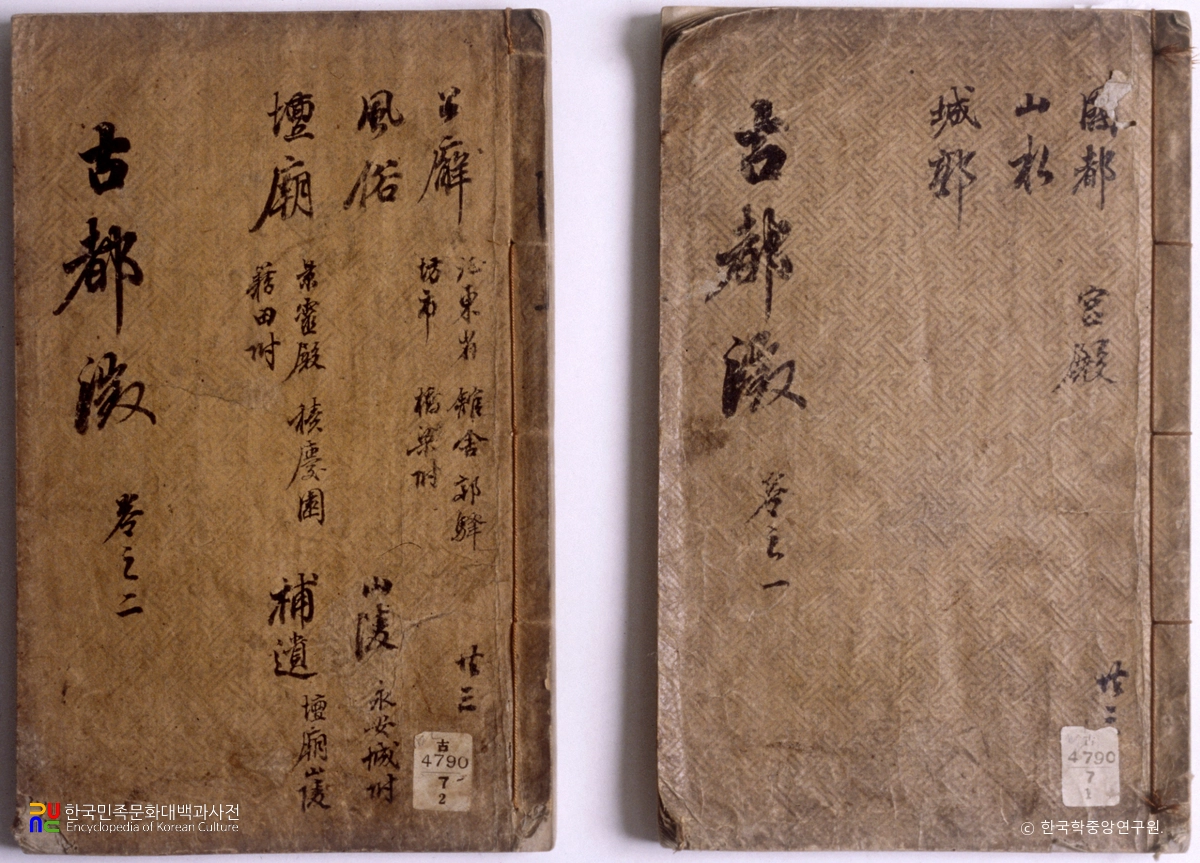 公廨
征東省 離舍郭驛
坊市 橋梁附
風俗
壇廟
景靈殿 積慶園
籍田附
山陵
永安城附
補遺
壇廟山陵
古都徵
卷之二
共三
古
4790
7
2
國都
宮殿
山水
城郭
古都徵
卷之一
共二
古
4790
7
1
한국민족문화대백과사전
Encyclopedia of Korean Culture
© 한국학중앙연구원.